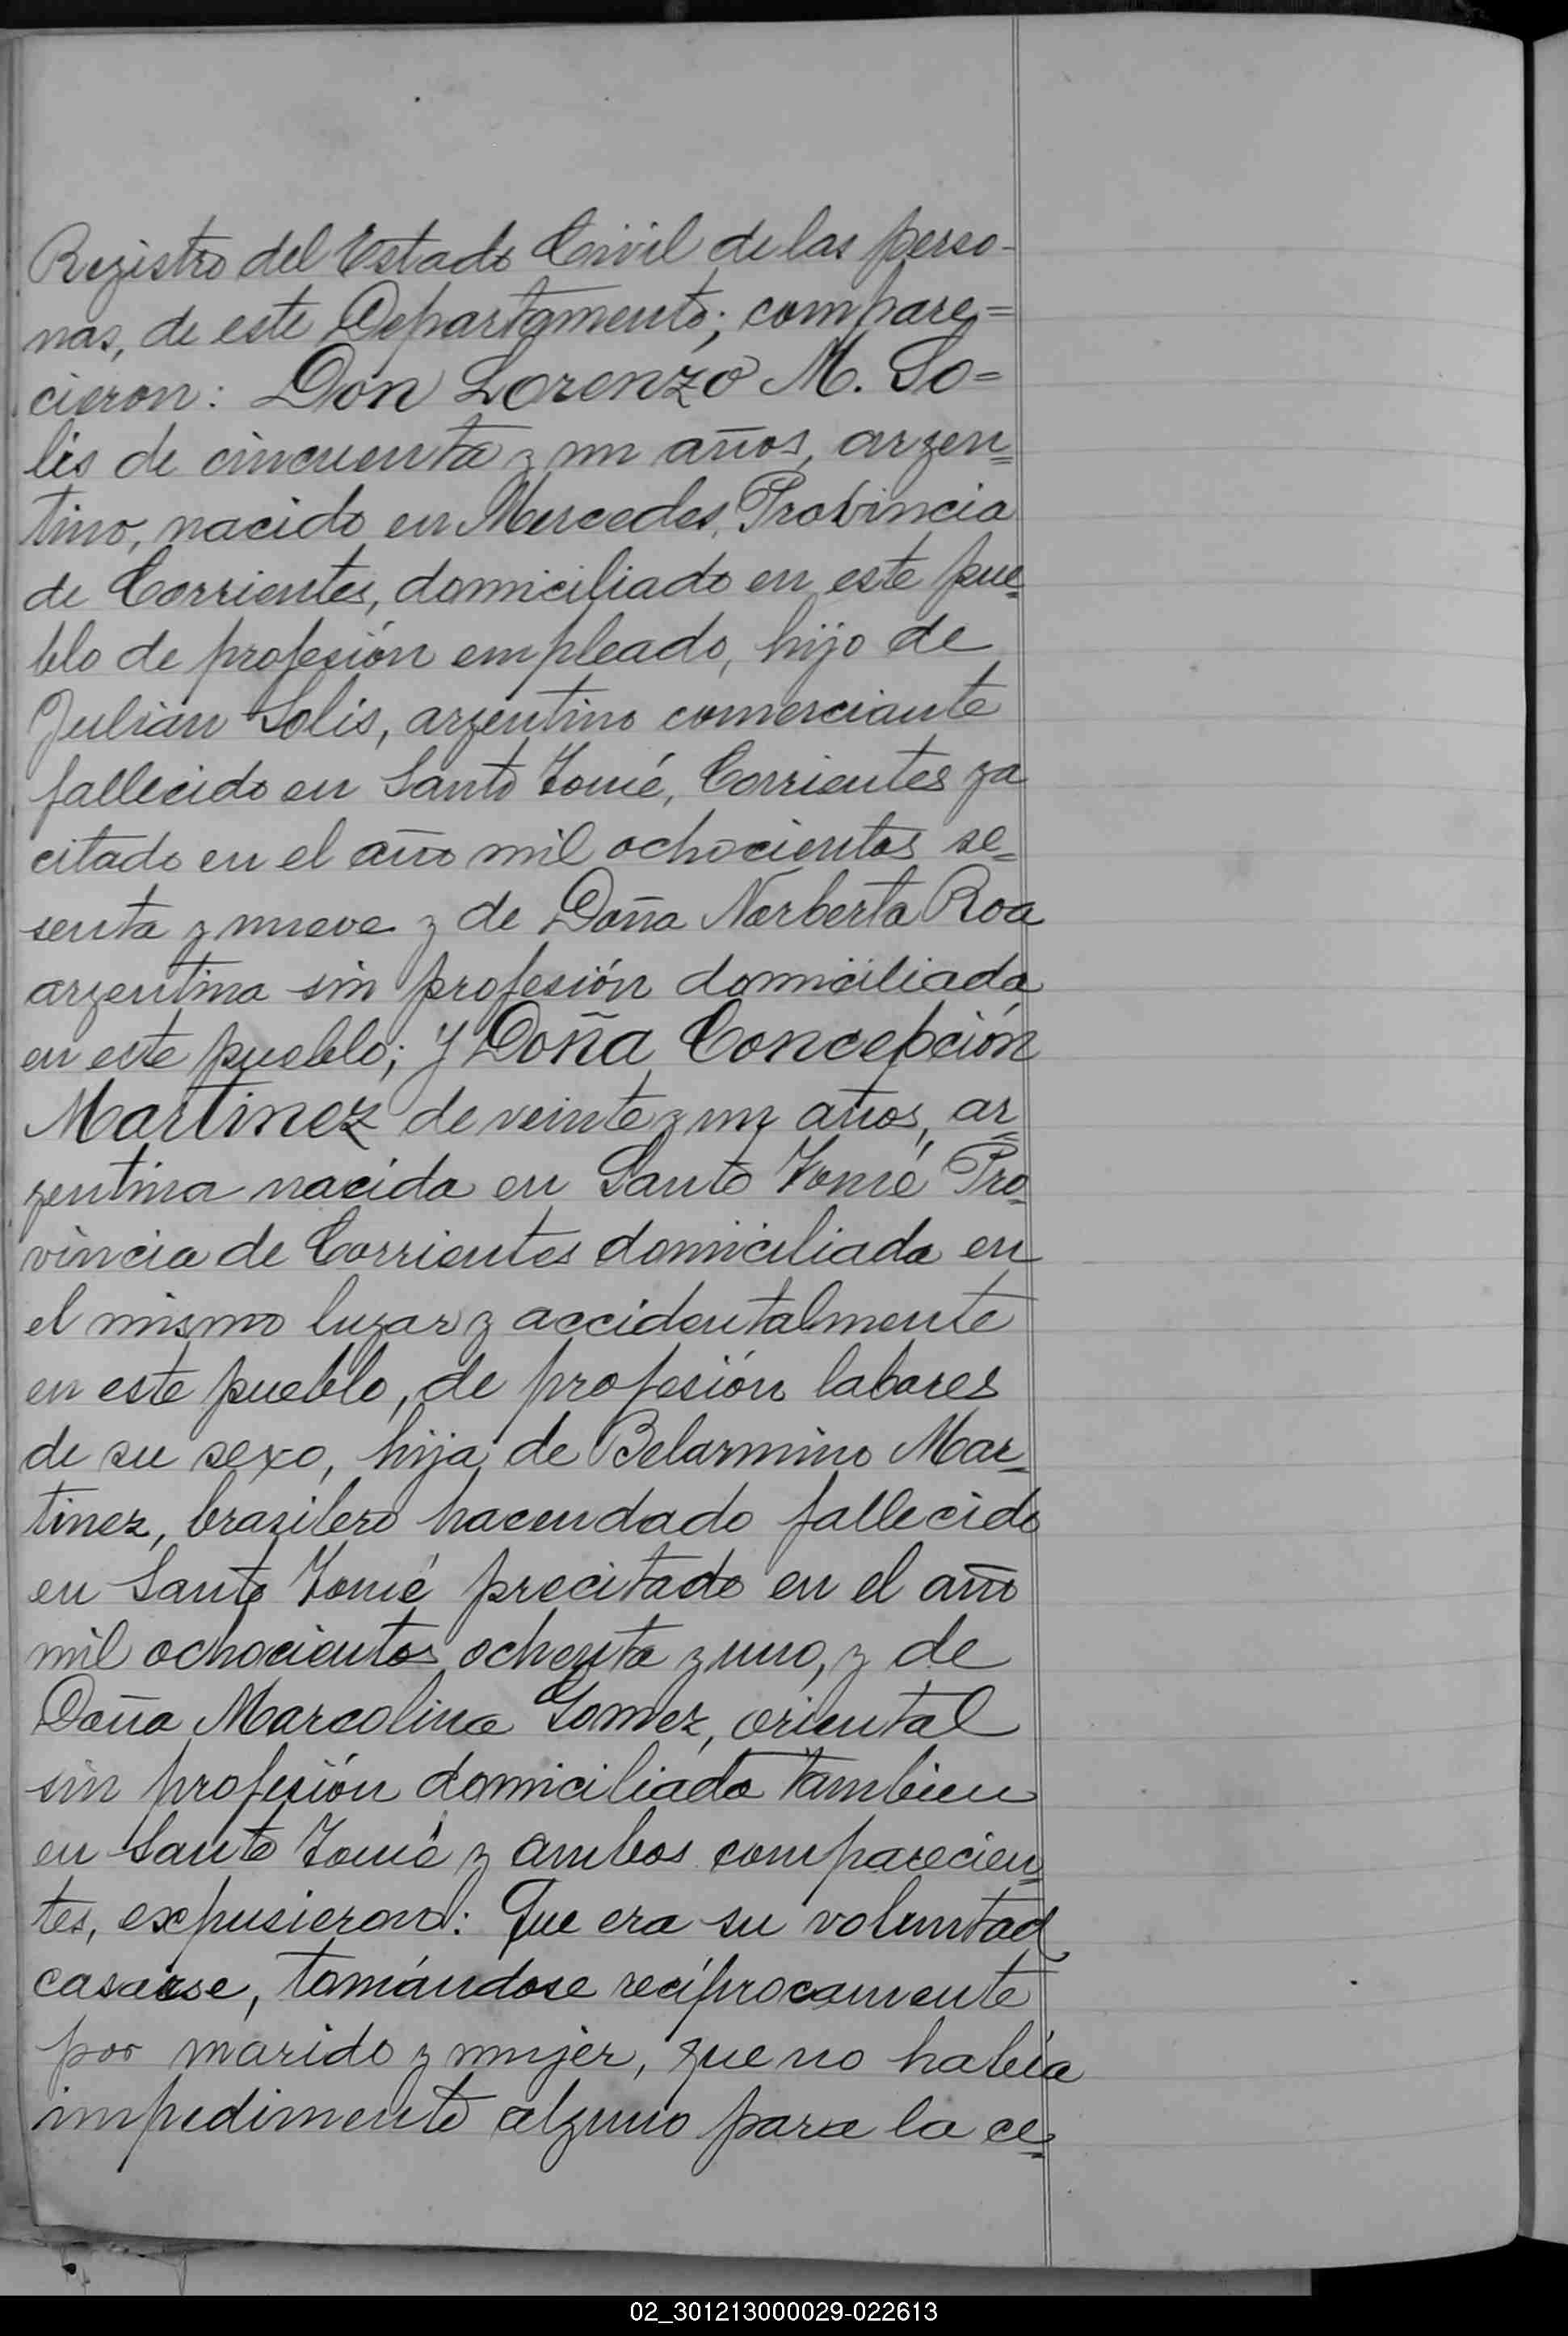 Registro del Estado Civil de las perso-
nas, de este Departamento; compare=
cieron: Don Lorenzo M. So=
lis de cincuenta y un años, argen=
tino, nacido en Mercedes, Provincia
de Corrientes, domiciliado en este pue=
blo de profesión empleado, hijo de
Julián Solis, argentino comerciante
fallecido en Santo Tomé, Corrientes ya
citado en el año mil ochocientos se=
senta y nueve y de Doña Norberta Roa
argentina sin profesión domiciliada
en este pueblo; y Doña Concepción
Martinez de veinte y un años, ar=
gentina nacida en Santo Tomé Pro=
vincia de Corrientes domiciliada en
el mismo lugar y accidentalmente
en este pueblo, de profesión labores
de su sexo, hija de Belarmino Mar=
tinez, brasilero hacendado fallecido
en Santo Tomé precitado en el año
mil ochocientos ochenta y uno, y de
Doña Marcolina Gomez, oriental
sin profesión domiciliada tambien
en Santo Tomé y ambos comparecien=
tes, expusieron: Que era su voluntad
casarse, tomándose recíprocamente
por marido y mujer, que no había
impedimento alguno para la ce=
02_301213000029-022613